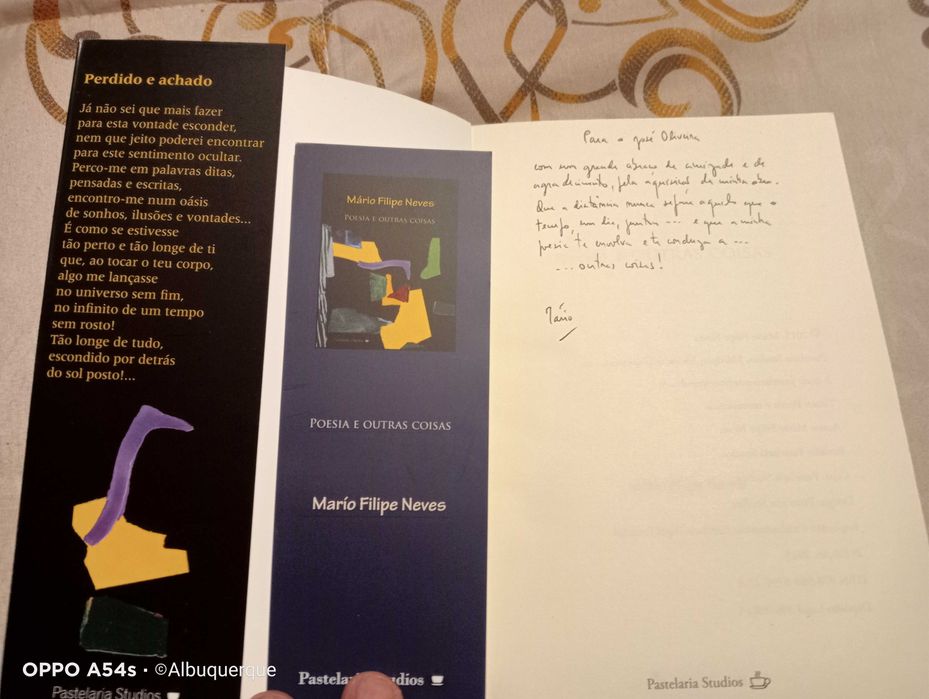 Perdido e achado
Já não sei que mais fazer
para esta vontade esconder,
nem que jeito poderei encontrar
para este sentimento ocultar.
Perco-me em palavras ditas,
pensadas e escritas,
encontro-me num oásis
de sonhos, ilusões e vontades...
É como se estivesse
tão perto e tão longe de ti
que, ao tocar o teu corpo,
algo me lançasse
no universo sem fim,
no infinito de um tempo
sem rosto!
Tão longe de tudo,
escondido por detrás
do sol posto!...
Pastelaria Studios
Mário Filipe Neves
Poesia e outras coisas
Poesia e outras coisas
Marío Filipe Neves
Pastelaria Studios
Para o José Oliveira
com um grande abraço de amizade e de
agradecimento, pela aquisição da minha obra.
Que a distância nunca separe aquilo que o
tempo, um dia, juntou ... e que a minha
poesia te envolva e te conduza a ...
... outras coisas!
Mário
Pastelaria Studios
OPPO A54s · ©Albuquerque